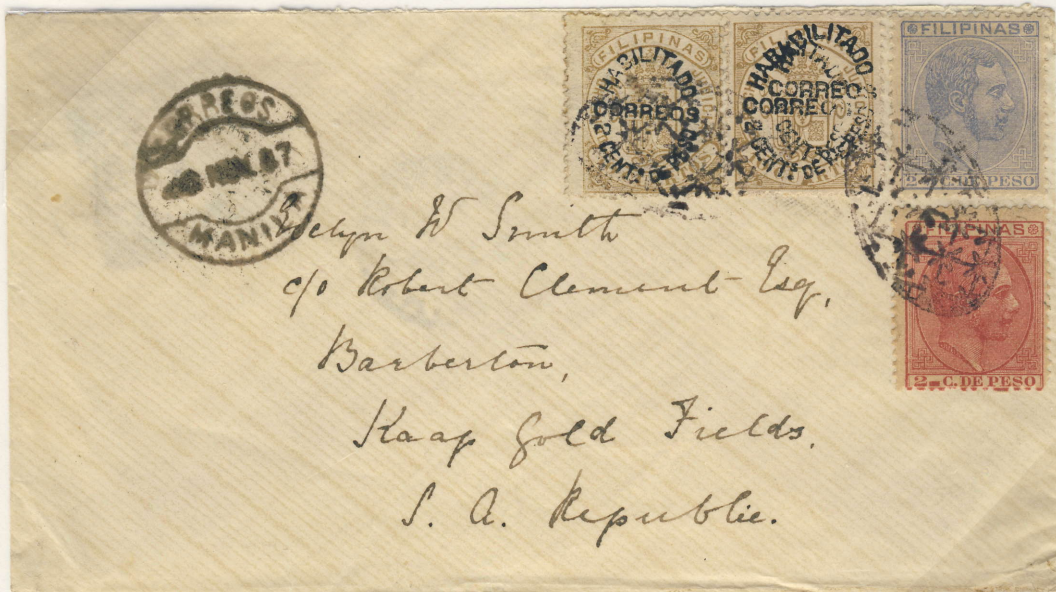 CORREOS
NOV. 87
MANILA
FILIPINAS
HABILITADO
CORREOS
2 CENT.S DE PESO
HABILITADO
HABILITADO
CORREO
CORREOS
CENT.S
2 CENT.S DE PESO
FILIPINAS
C. DE PESO
FILIPINAS
2 C. DE PESO
Evelyn W Smith
c/o Robert Clement Esq,
Barberton,
Kaap Gold Fields.
S. A. Republic.